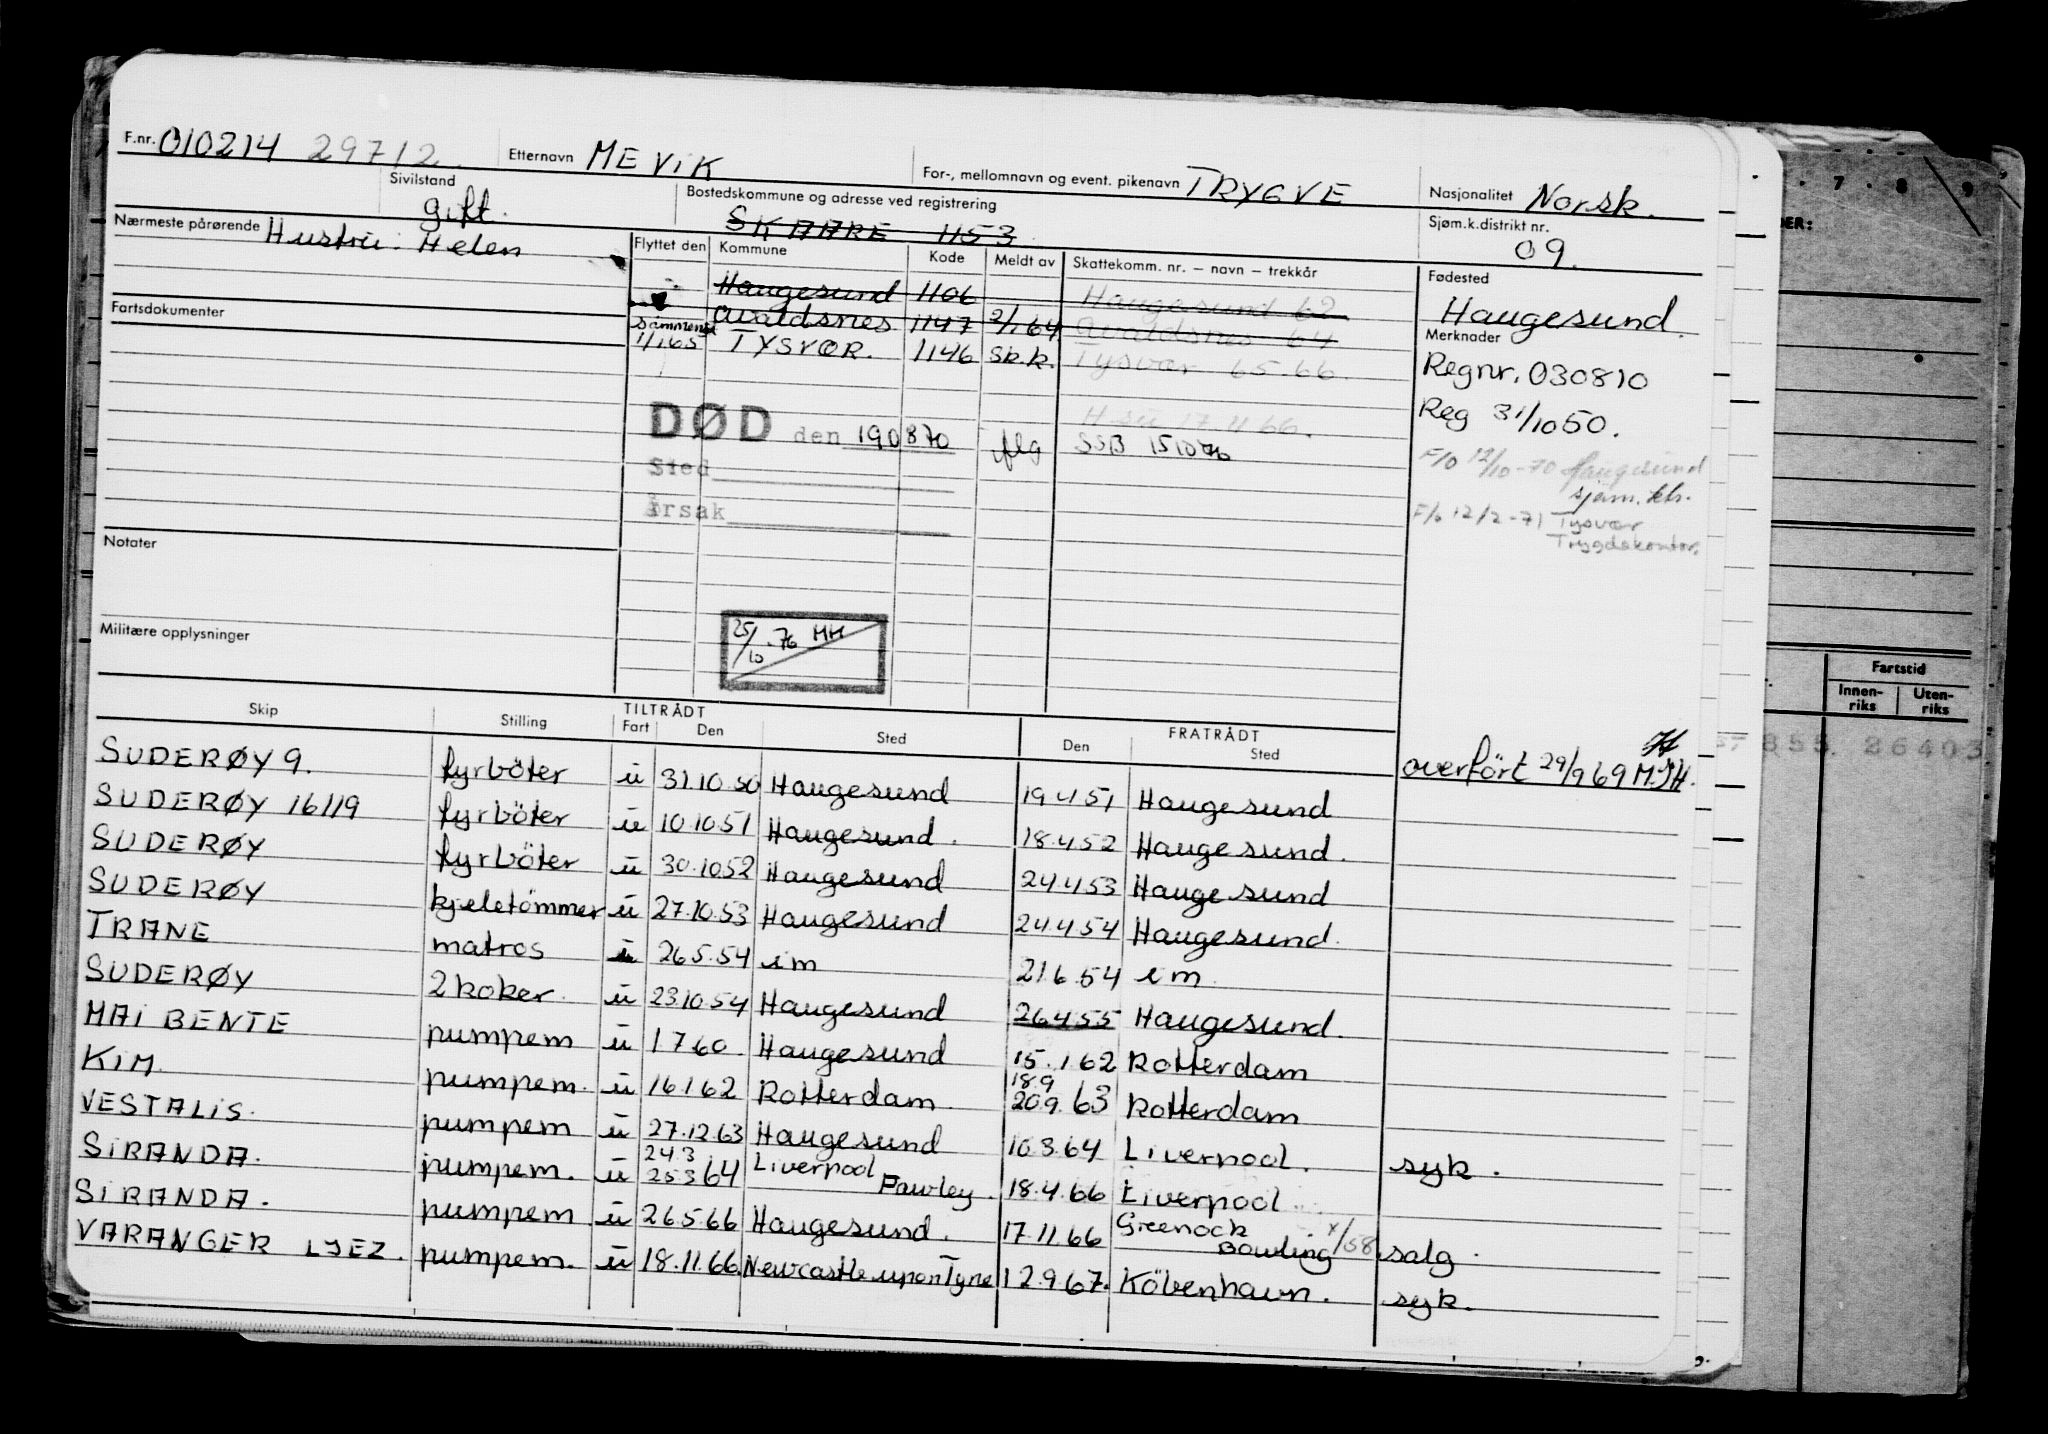 F.nr. 010214 29712. Etternavn MEVIK For-, mellomnavn og event. pikenavn TRYGVE Nasjonalitet Norsk.
Sivilstand gift. Bostedskommune og adresse ved registrering SKAARE 1153 Sjøm.k.distrikt nr. 09.
Nærmeste pårørende Hustru: Helen
Flyttet den Kommune Kode Meldt av Skattekomm. nr. – navn – trekkår Fødested
Haugesund 1106 Haugesund 62 Haugesund.
Fartsdokumenter
Avaldsnes 1147 2/1 64 Avaldsnes 64 Merknader
sammensl 1/1 65 TYSVÆR. 1146 Sk.k. Tysvær 65-66. Regnr. 030810
Reg 31/10 50.
DØD den 190870 flg SSB 151070
F/o 12/10-70 Haugesund
Sted sjøm. ktr.
Årsak F/o 12/2-71 Tysvær
Trygdekontor.
Notater
25/10-76 HH
Militære opplysninger
Fartstid
Innen-riks Uten-riks
855. 26403
TILTRÅDT FRATRÅDT
Skip Stilling Fart Den Sted Den Sted
overført 29/9 69 M.JH.
SUDERØY 9. fyrböter u 31.10.50 Haugesund 19.4.51 Haugesund
SUDERØY 16119 fyrböter u 10.10.51 Haugesund. 18.4.52 Haugesund.
SUDERØY fyrböter u 30.10.52 Haugesund 24.4.53 Haugesund
SUDERØY kjeletömmer u 27.10.53 Haugesund 24.4.54 Haugesund.
TRANE matros i 26.5.54 im 21.6.54 im.
SUDERØY 2 koker. u 23.10.54 Haugesund 26.4.55 Haugesund.
MAI BENTE pumpem u 1.7.60. Haugesund 15.1.62 Rotterdam
KIM. pumpem. u 16.1.62 Rotterdam. 18.9 20.9. 63 Rotterdam
VESTALIS. pumpem u 27.12.63 Haugesund 10.3.64 Liverpool. syk.
SIRANDA. pumpem. u 24.3 25.3 64 Liverpool Fawley. 18.4.66 Liverpool
SIRANDA. pumpem u 26.5.66 Haugesund. 17.11.66 Greenock Bowling x/58 salg.
VARANGER LJEZ. pumpem. u 18.11.66 Newcastle upon Tyne 12.9.67. Köbenhavn. syk.